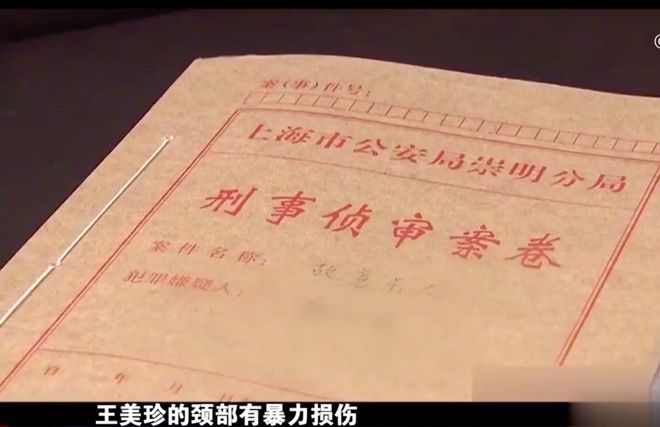 案(事)件号:
上海市公安局崇明分局
刑事侦审案卷
案件名称: 故意杀人
犯罪嫌疑人:
年 月 日
王美珍的颈部有暴力损伤